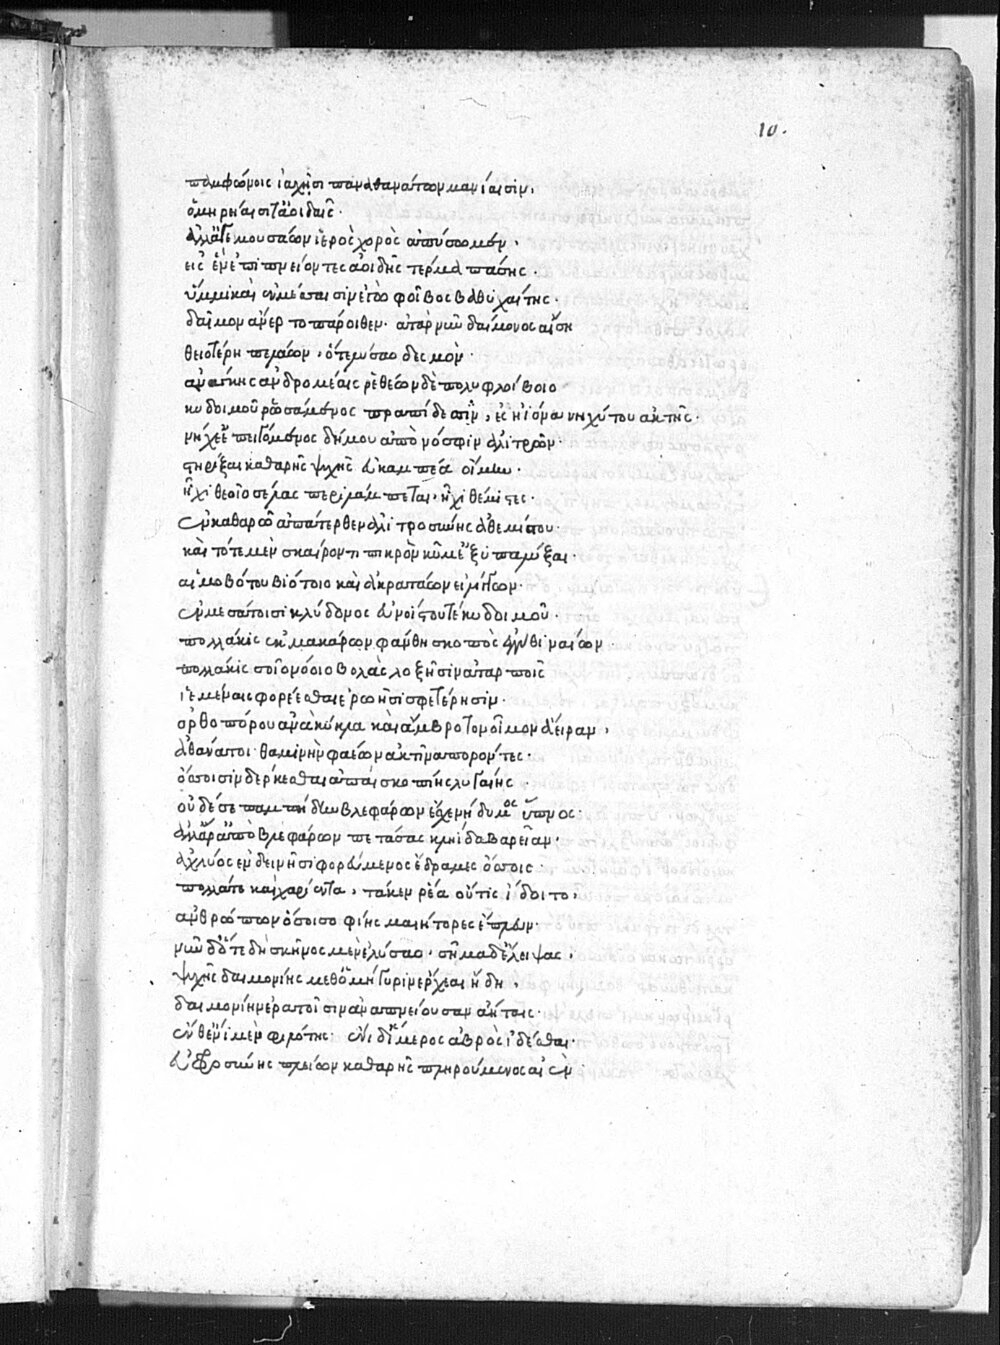 10.
παμφώνοις ἰαχῇσι παναθανάτων μανίαισιν,
ὁμηρηίαισί τ' ἀοιδαῖς·
ἀλλ' ἄγε μουσάων ἱερὸς χορὸς ἀπύσωμεν,
εἰς ἓν ἐπιπνείοντες ἀοιδῆς τέρμα πάσης·
ὕμμι καὶ ἐν μέσσαισιν ἐγὼ φοῖβος βαθυχαίτης·
δαῖμον ἄνερ τὸ πάροιθεν· ἀτὰρ νῦν δαίμονος αἴσῃ
θειοτέρῃ πελάων, ὅτε λύσαο δεσμὸν
ἀνάγκης ἀνδρομέαις ῥεθέων δὲ πολυφλοίσβοιο
κυδοιμοῦ ῥωσάμενος πραπίδεσσιν, ἐς ἠϊόνα νηχύτου ἀκτῆς·
νήχε' ἐπειγόμενος δήμου ἀπὸ νόσφιν ἀλιτρῶν·
στηρίξαι καθαρῆς ψυχῆς εὐκαμπέα οἴμην·
ἧχι θεοῖο σέλας περιλάμπεται, ἧχι θέμιστες·
ἐν καθαρῷ ἀπάτερθεν ἀλιτροσύνης ἀθεμίστου·
καὶ τότε μὲν σκαίροντι πικρὸν κῦμ' ἐξυπαλύξαι·
αἱμοβότου βιότοιο καὶ ἀκραπάων εἰλίγγων·
ἐν μεσάτοισι κλύδωνος ἀνωίστου τε κυδοιμοῦ·
πολλάκις ἐκ μακάρων φάνθη σκοπὸς ἐγγύθι ναίων
πολλάκις σοῖο νόοιο βολὰς λοξῇσιν ἀταρποῖς
ἱεμένας φορέεσθαι ἐρωῇσι σφετέρῃσιν·
ὀρθοπόρου ἀνὰ κύκλα καὶ ἄμβροτον οἶμον ἄειραν,
ἀθάνατοι· θαμινὴν φαέων ἀκτῖνα πορόντες·
ὄσσοισιν δέρκεσθαι ἀπαὶ σκοπίης λυγαίης
οὐδέ σε παμπήδην βλεφάρων ἔχε νήδυμος ὕπνος
ἀλλ' ἄρ' ἀπὸ βλεφάρων πετάσας κληῖδα βαρεῖαν·
ἀχλύος ἐν δείνῃσι φορεύμενος ἔδρακες ὄσσοις
πολλά τε καὶ χαρίεντα, τά κεν ῥέα οὔτις ἴδοιτο,
ἀνθρώπων ὅσοι σοφίης μαιήτορες ἔπλευν·
νῦν δ' ὅτε δὴ σκῆνος μὲν ἐλύσαο, σῆμα δ' ἔλειψας,
ψυχῆς δαιμονίης μεθ' ὁμήγυριν ἔρχεαι ἤδη,
δαιμονίην ἐρατοῖσιν ἀναπνείουσαν ἀήταις·
ἔνθ' ἔνι μὲν φιλότης· ἔνι δ' ἵμερος ἁβρὸς ἰδέσθαι·
εὐφροσύνης πλείων καθαρῆς πληρούμενος αἰὲν·